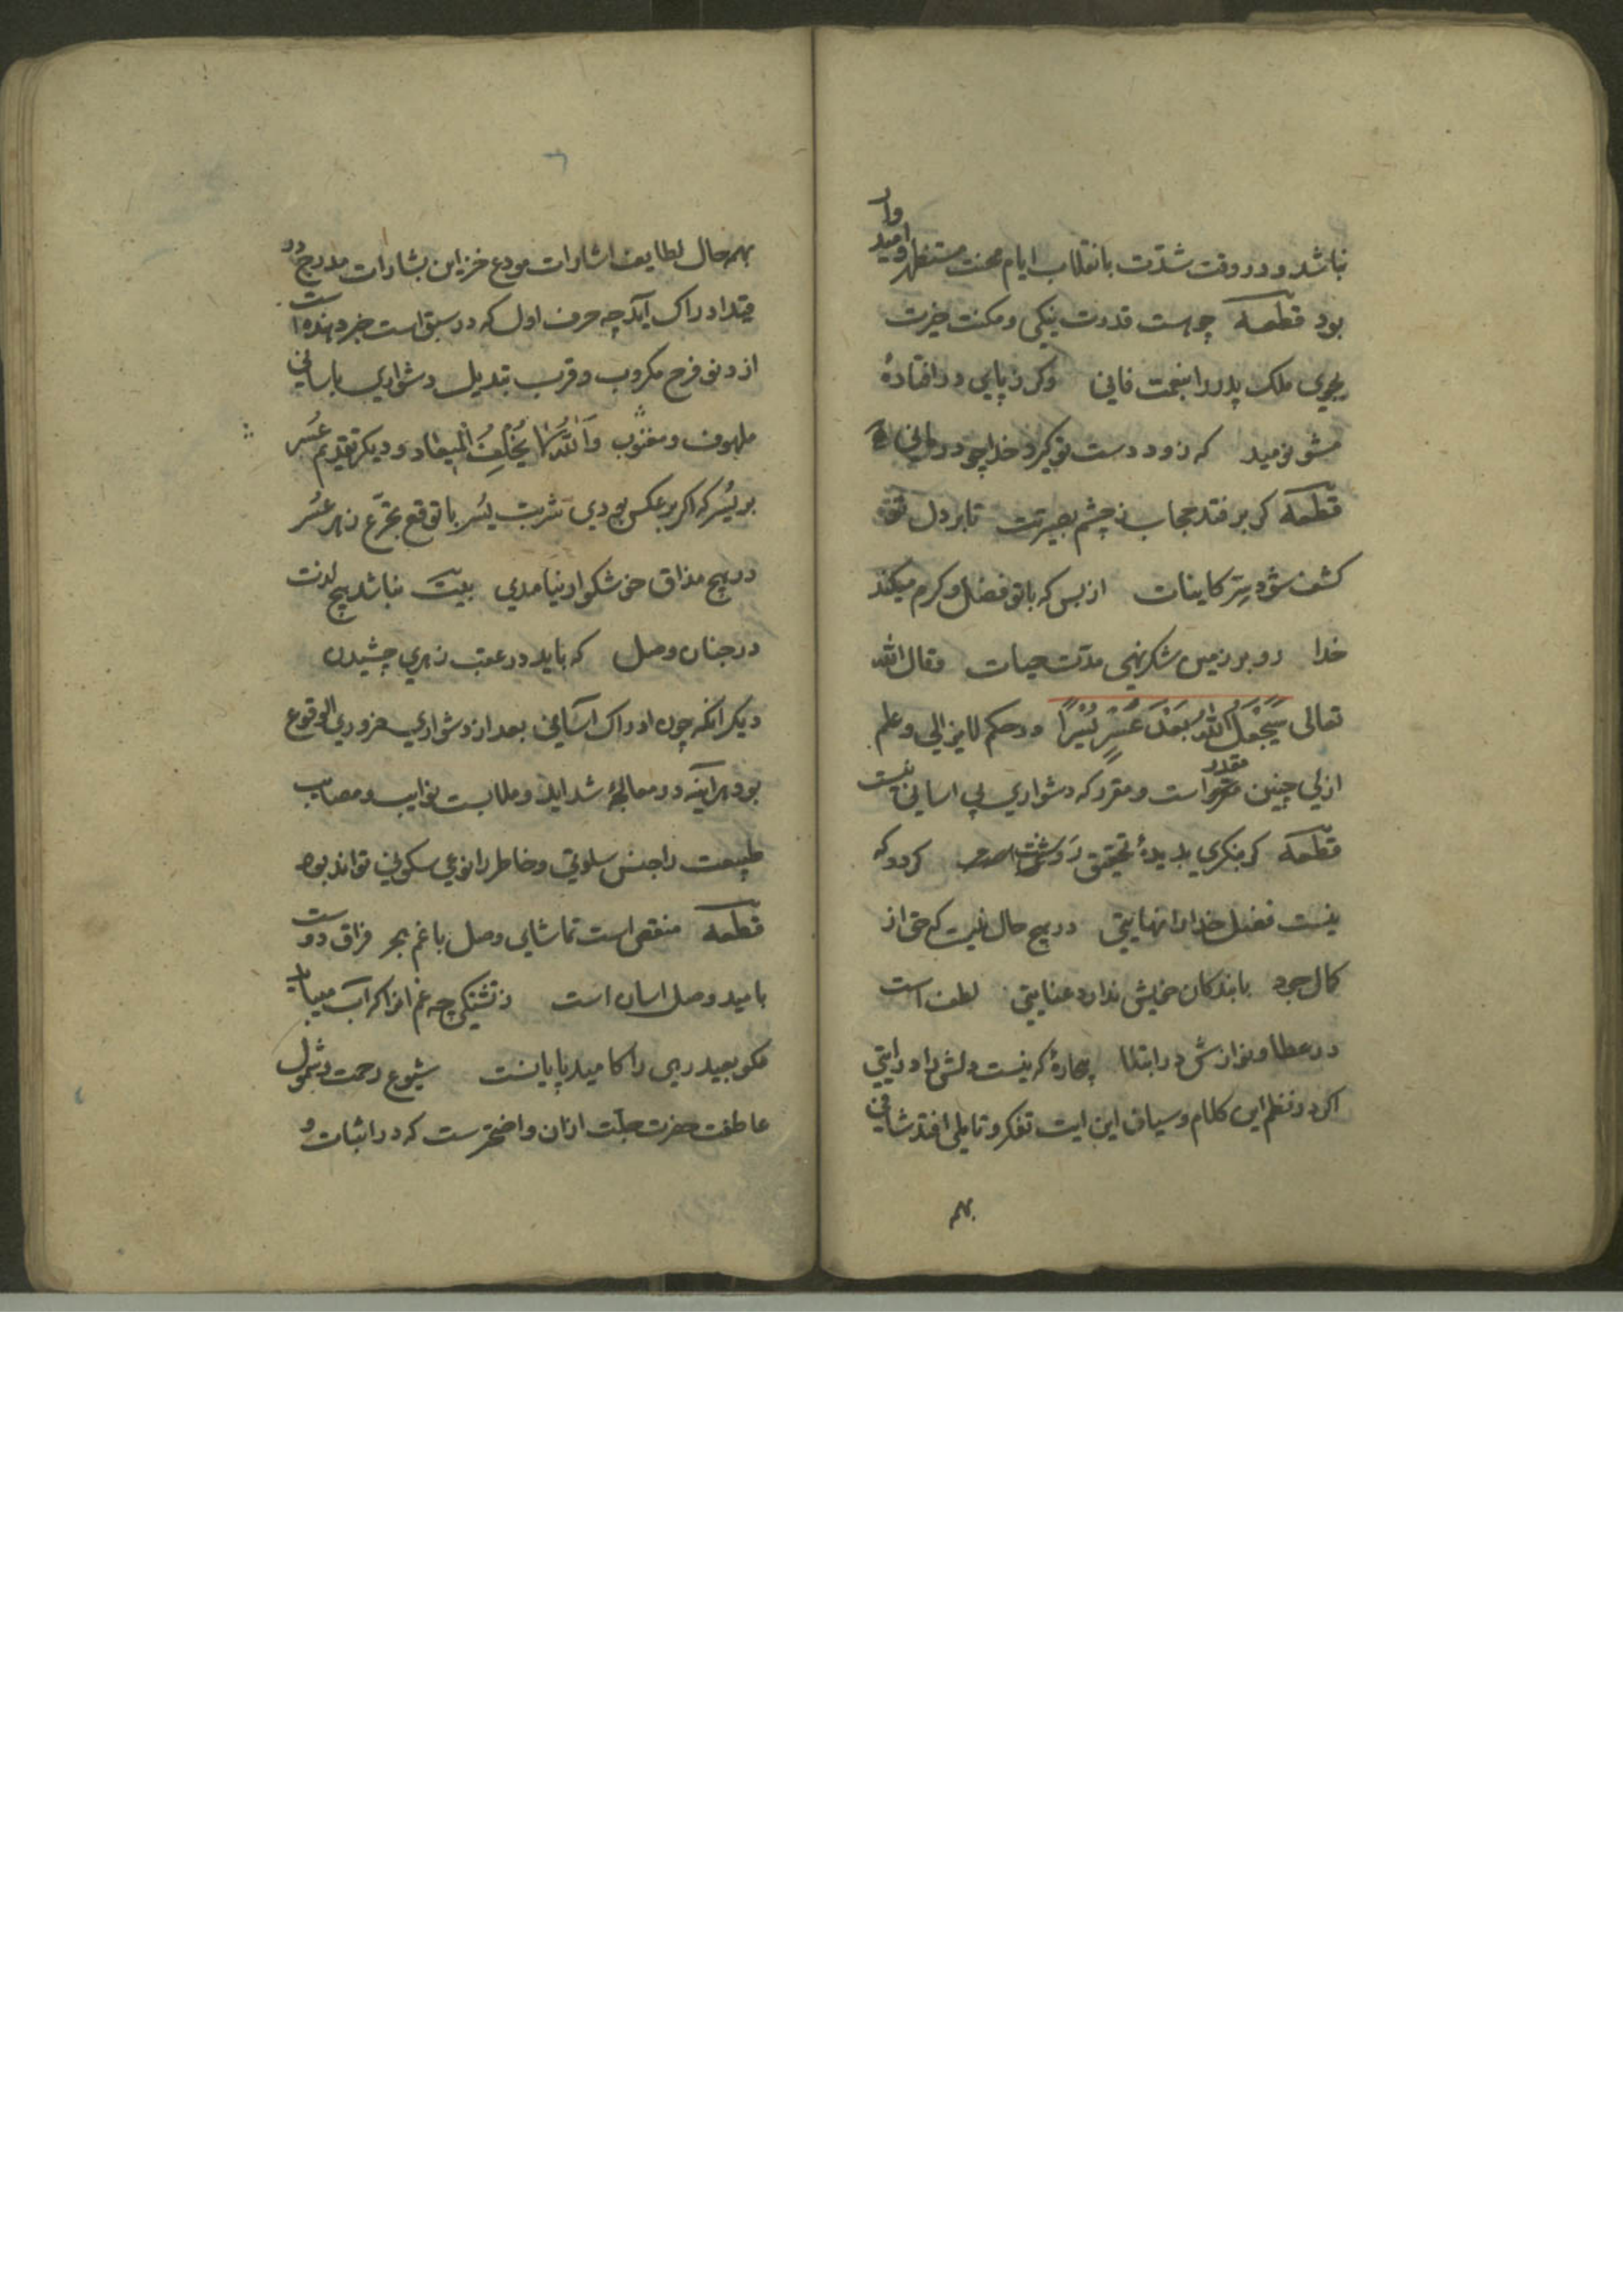 نباشد و در وقت شدت بانقلاب ایام محنت مستظهر و امیدوار
بود قطعه چو هست قدرت نیکی و مکنت خیرت
بجوی ملک پدر را بنعمت فانی وکر ز پای درافتادهٔ
مشو نومید که زود دست تو کیرد خدا چو درمانی
قطعه کر برفتد حجاب ز چشم بصیرتت تا بر دل تو
کشف شود سِرّ کاینات از بس که با تو فضل و کرم میکند
خدا رو بر زمین شکر نهی مدّت حیات و قال الله
تعالی سَیَجْعَلُ اللهُ بَعْدَ عُسْرٍ یُسْراً و در حکم لایزالی و علم
ازلی چنین مقدر است و مقرر که دشواری بی اسانی نیست
قطعه کر بنکری بدیدهٔ تحقیق روشنت کردد که
نیست فضل خدا را نهایتی در هیچ حال نیست که حق از
کمال جود با بندکان خویش ندارد عنایتی لطف است
در عطا و نوازش در ابتلا بیچارهٔ که نیست دلش را درایتی
اکر در نظم این کلام و سیاق این ایت تفکر و تاملی افتد شافی
بهم
بهمه حال لطایف اشارات مودع خزاین بشارات مدرج در
قید ادراک آید چه حرف اول که در سبق است خبر دهنده است
از دنو فرح مکروب و قرب تبدیل دشواری باسانی
ملهوف و مغنوب وَاللهُ لا یُخْلِفُ الْمیعاد و دیکر تقدیم عُسر
بر یُسر که اکر بر عکس بودی شربت یُسر با توقع تجرّع زهر عُسر
در هیچ مذاق خوشکوار نیامدی بیت نباشد هیچ لذت
در جنان وصل که باید در عقب زهری چشیدن
دیکر انکه چون ادراک آسانی بعد از دشواری ضروری الوقوع
بود هرآینه در معالجهٔ شداید و ملابست نوایب و مصایب
طبیعت را جنس سلوتی و خاطر را نوعی سکونی تواند بود
قطعه منقص است تماشای وصل با غم هجر فراق دوست
بامید وصل اسان است ز تشنکی چه غم انرا که آب
مکو بعید رهی را کامید پایانست شیوع رحمت و شمول
عاطفت حضرت جلّت ازان واضحترست که در اثبات و